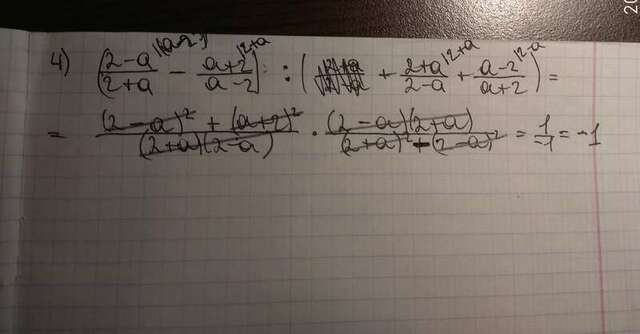 4) ((2-a)/(2+a) |(a-2) - (a+2)/(a-2) |2+a) : ( + (2+a)/(2-a) |2+a + (a-2)/(a+2) |2-a) =
= ((2-a)² + (a+2)²)/((2+a)(2-a)) · ((2-a)(2+a))/((2+a)² - (2-a)²) = 1/-1 = -1
20